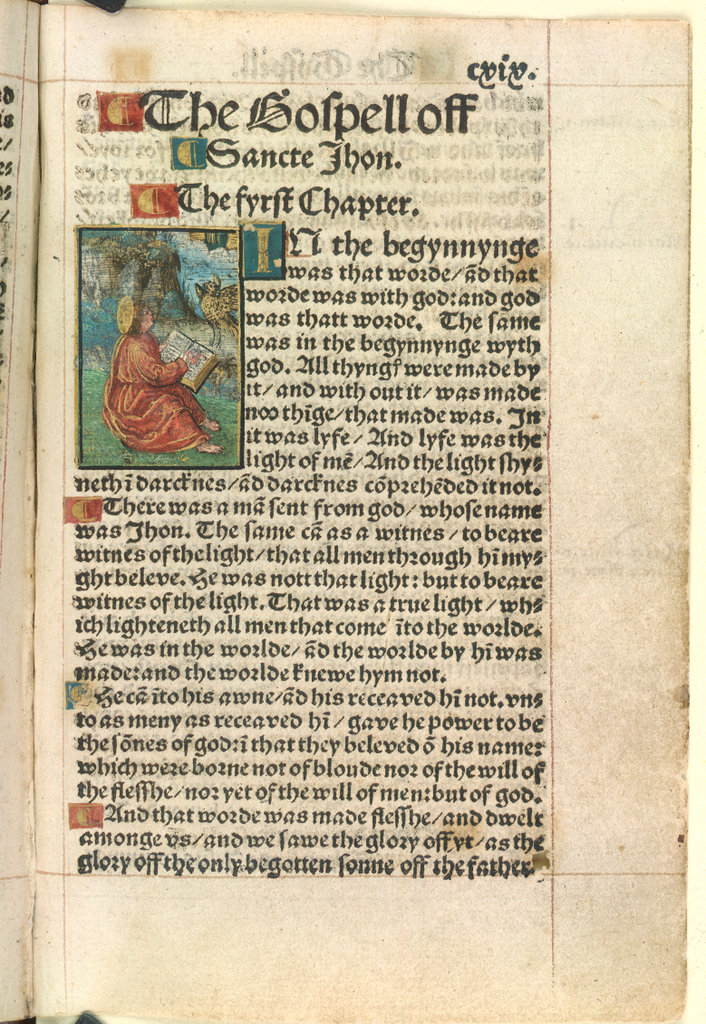 cxix.
The Gospell off
Sancte Jhon.
The fyrst Chapter.
IN the begynnynge
was that worde/ ād that
worde was with god: and god
was thatt worde. The same
was in the begynnynge wyth
god. All thyngꝭ were made by
it/ and with out it/ was made
noo thīge/ that made was. In
it was lyfe/ And lyfe was the
light of mē/ And the light shy⸗
neth ī darcknes/ ād darcknes cōprehēded it not.
There was a mā sent from god/ whose name
was Jhon. The same cā as a witnes/ to beare
witnes of the light/ that all men through hī my⸗
ght beleve. He was nott that light: but to beare
witnes of the light. That was a true light/ wh⸗
ich lighteneth all men that come īto the worlde.
He was in the worlde/ ād the worlde by hī was
made: and the worlde knewe hym not.
He cā īto his awne/ ād his receaved hī not. vn⸗
to as meny as receaved hī/ gave he power to be
the sōnes of god: ī that they beleved ō his name:
which were borne not of bloude nor of the will of
the flesshe/ nor yet of the will of men: but of god.
And that worde was made flesshe/ and dwelt
amonge vs/ and we sawe the glory off yt/ as the
glory off the only begotten sonne off the father